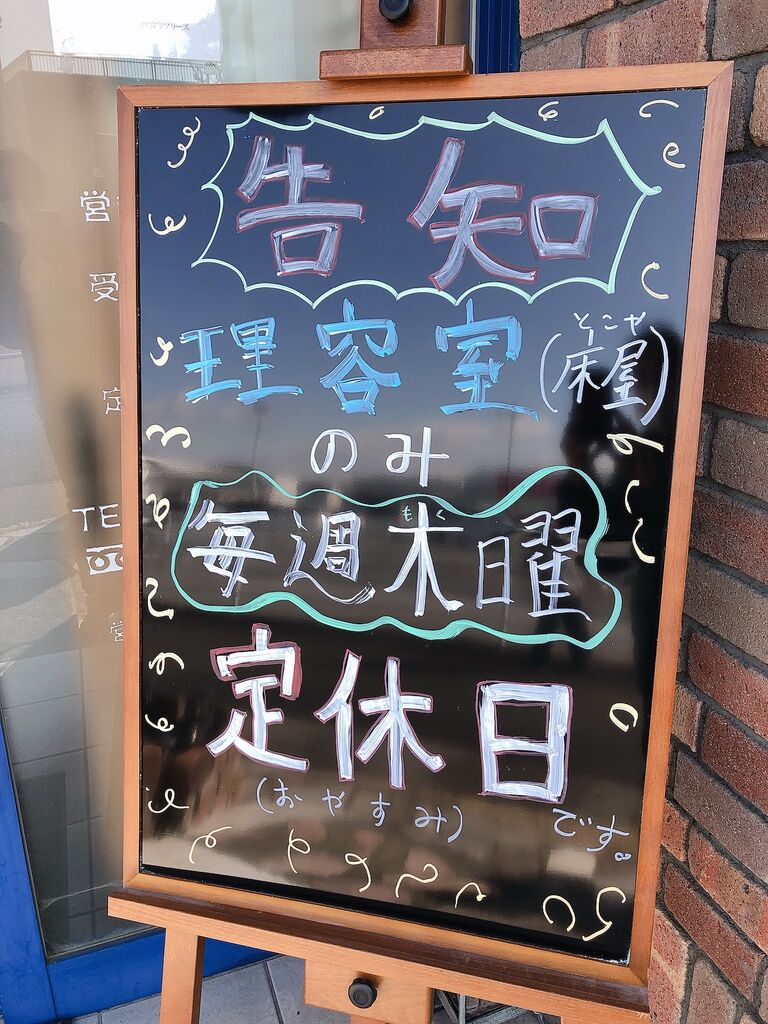 告知
とこや
理容室(床屋)
のみ
もく
毎週木曜
定休日
(おやすみ) です。
営
受
定
TE